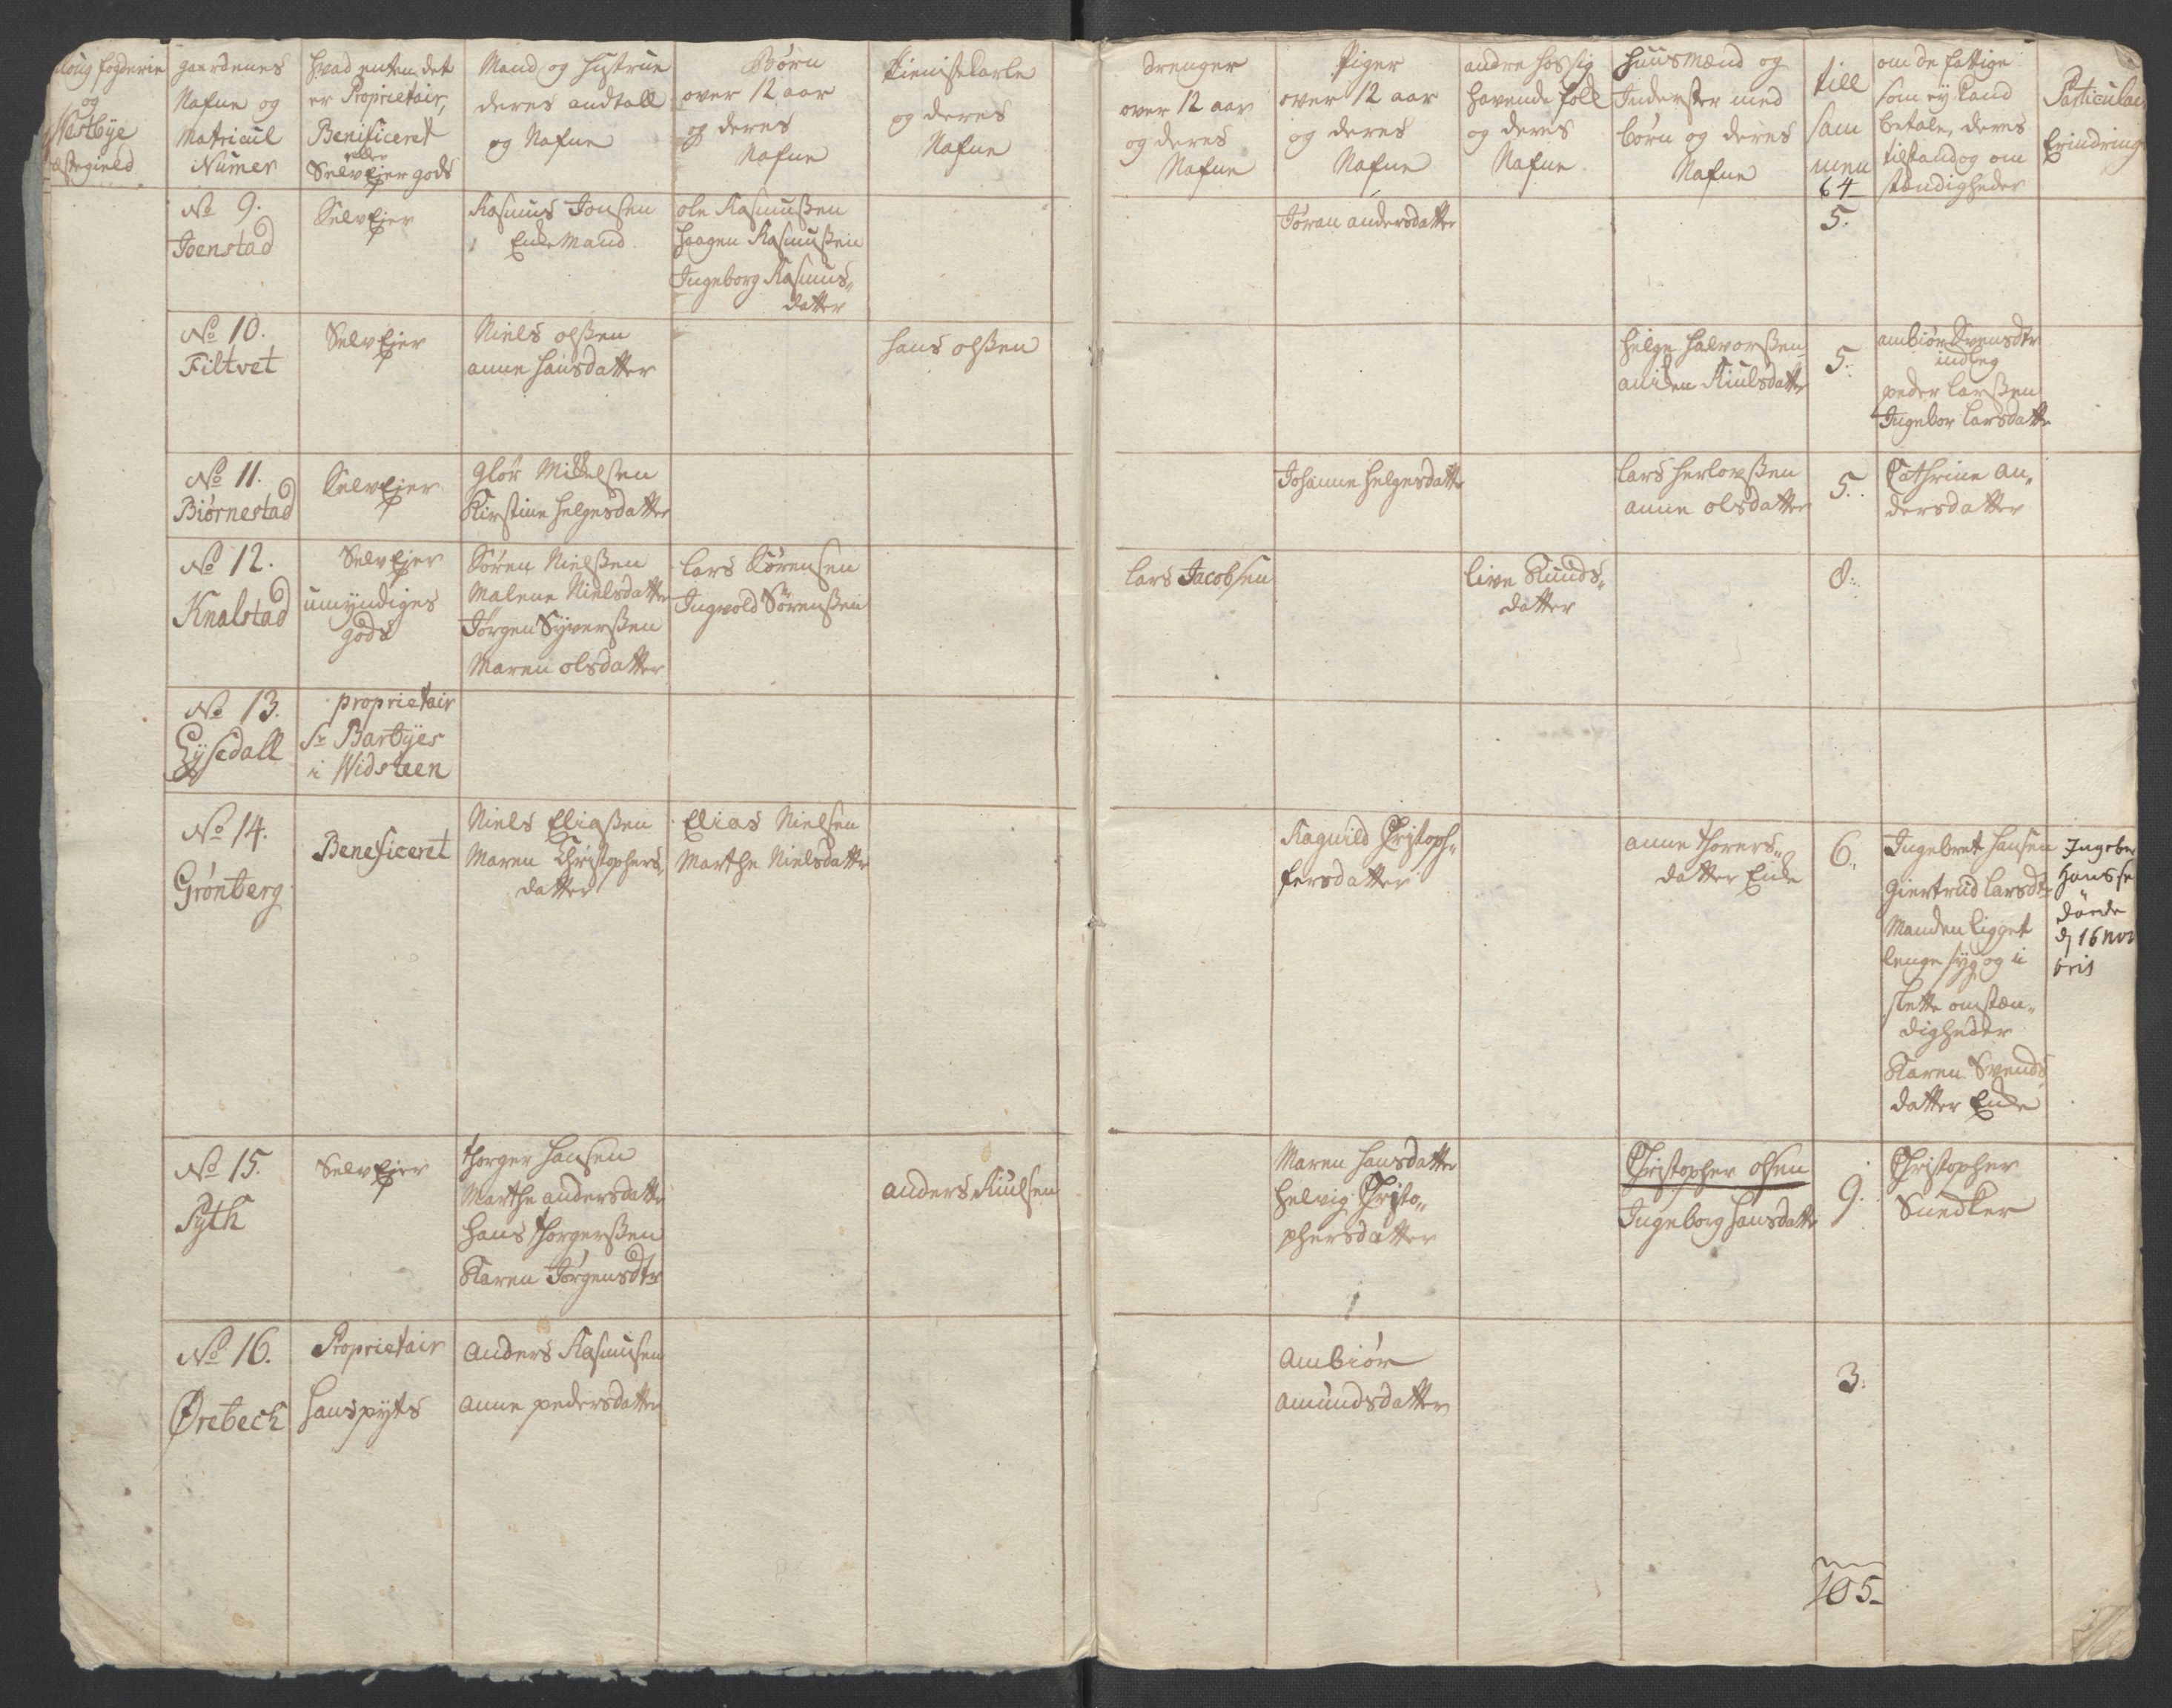 fogderie
og
Nestbye
Præstegield
gaardenes
Nafne og
Matricul
Numer
hvad enten det
er Proprietair,
Benificeret
eller
SelvEjer gods
Mand og Hustrue
deres andtall
og Nafne
Børn
over 12 aar
og deres
Nafne
Tienistekarle
og deres
Nafne
drenger
over 12 aar
og deres
Nafne
Piger
over 12 aar
og deres
Nafne
andre hos sig
havende folk
og deres
Nafne
Huusmænd og
Inderster med
børn og deres
Nafne
till
sam
men
64
om de fattige
som ey kand
betale, deres
tilstand og om
stændigheder
Particulair
Erindring
No 9.
Joenstad
SelvEjer
Rasmus Jonsen
1 EnkeMand
ole Rasmusßen
Haagen Rasmusßen
Ingeborg Rasmus„
datter
Jøran andersdatter
5.
No 10.
Filtvet
SelvEjer
Niels olßen
anne Hansdatter
Hans olßen
Helge Halvorßen
aniken Kiulsdatter
5.
ambiør Svensdtr
indleg
peder larßen
Ingebor larsdatter
No 11.
Biørnestad
SelvEjer
glør Mikkelsen
Kirstine Helgesdatter
Johanne Helgesdatter
lars Herlovßen
anne olsdatter
5.
Cathrine An„
dersdatter
No 12.
Knalstad
SelvEjer
umyndiges
gods
Søren Nielßen
Malene Nielsdatter
Jørgen Syverßen
Maren olsdatter
lars Sørensen
Ingvold Sørenßen
lars Jacobsen
live Knuds„
datter
8.
No 13.
Gysedall
proprietair
Sr Bartyes
i Widsteen
No 14.
Grønberg
Beneficeret
Niels Eliaßen
Maren Christophers„
datter
Elias Nielsen
Marthe Nielsdatter
Ragnild Christoph„
fersdatter
anne Thorers„
datter Enke
6.
Ingebret Hansen
Giertrud larsdtr
Manden ligget
lenge syg og i
slette omstæn„
digheder
Karen Svends
datter Enke
Ingebre
Hansse
døede
d 16 nov
bris
No 15.
Pyth
SelvEjer
Thorger Hansen
Marthe andersdatter
Hans Thorgerßen
Karen Jørgensdtr
anders Kiulsen
Maren Hansdatter
Helvig Christo„
phersdatter
1
Christopher olsen
Ingeborg Hansdatter
9.
Christopher
Snedker
No 16.
Ørebech
Proprietair
Hans pyts
anders Rasmusen
anne pedersdatter
Ambiør
Amundsdatter
3.
105